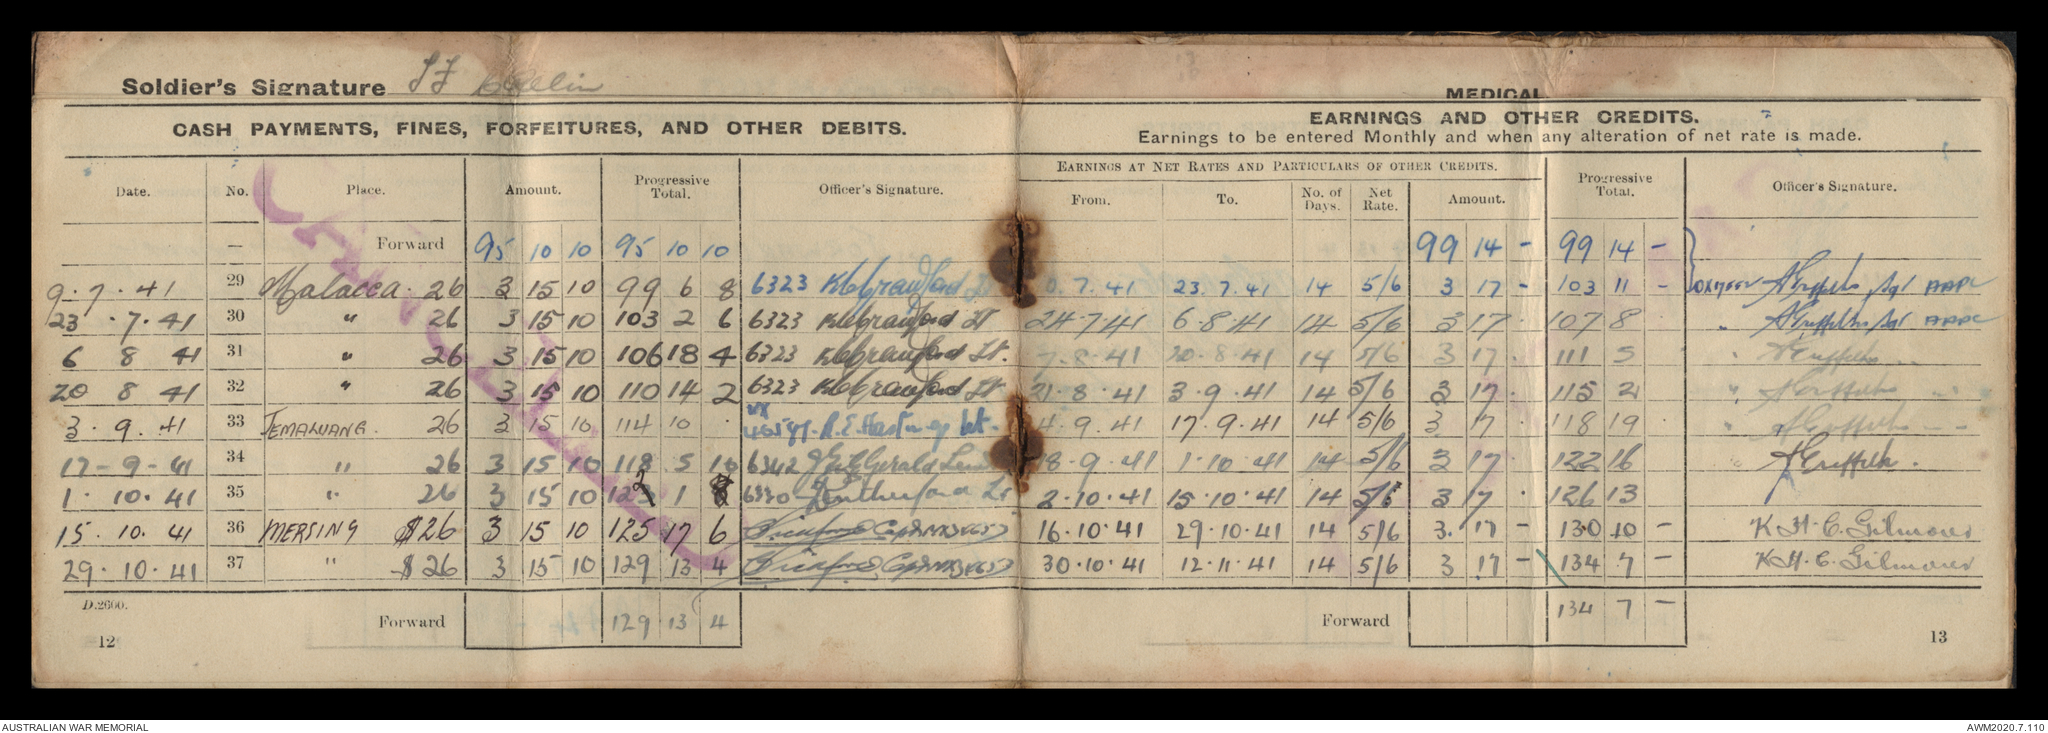 Soldier's Signature
MEDICAL
CASH PAYMENTS, FINES, FORFEITURES, AND OTHER DEBITS.
EARNINGS AND OTHER CREDITS.
Earnings to be entered Monthly and when any alteration of net rate is made.
EARNINGS AT NET RATES AND PARTICULARS OF OTHER CREDITS.
Date. No. Place. Amount. Progressive Total. Officer's Signature. From. To. No. of Days. Net Rate. Amount. Progressive Total. Officer's Signature.
— Forward 95 10 10 95 10 10 99 14 - 99 14 -
9.7.41 29 Malacca. 26 3 15 10 99 6 8 6323 Crawford Lt .7.41 23.7.41 14 5/6 3 17 - 103 11 - A Griffiths Sgt AAPC
23.7.41 30 " 26 3 15 10 103 2 6 6323 Crawford Lt 24.7.41 6.8.41 14 5/6 3 17 . 107 8 " A Griffiths Sgt AAPC
6 8 41 31 " 26 3 15 10 106 18 4 6323 Crawford Lt. 7.8.41 20.8.41 14 5/6 3 17 . 111 5 " A Griffiths
20 8 41 32 " 26 3 15 10 110 14 2 6323 Crawford Lt 21.8.41 3.9.41 14 5/6 3 17 . 115 2 " A Griffiths
3.9.41 33 JEMALUANG. 26 3 15 10 114 10 . R.E. Hastings Lt. 4.9.41 17.9.41 14 5/6 3 17 118 19 " A Griffiths
17-9-41 34 " 26 3 15 10 118 5 10 6342 Fitzgerald 18.9.41 1.10.41 14 5/6 3 17 . 122 16 A Griffiths.
1.10.41 35 " 26 3 15 10 122 1 8 6330 Rutherford Lt 2.10.41 15.10.41 14 5/6 3 17 . 126 13
15.10.41 36 MERSING $26 3 15 10 125 17 6 Capt 16.10.41 29.10.41 14 5/6 3. 17 - 130 10 - K H. C. Gilmour
29.10.41 37 " $26 3 15 10 129 13 4 Capt 30.10.41 12.11.41 14 5/6 3 17 - 134 7 - K H. C. Gilmour
D.2600.
Forward 129 13 4 Forward 134 7 -
12
13
CANCELLED
AUSTRALIAN WAR MEMORIAL
AWM2020.7.110